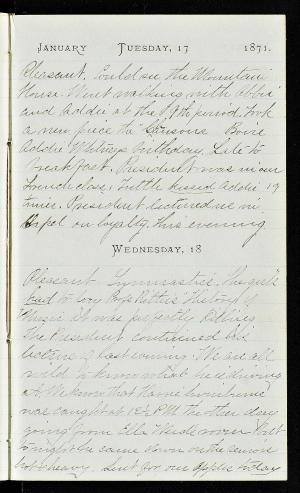 JANUARY TUESDAY, 17 1871.
Pleasant. Could see the Mountain
House. Went walking with Abbie
and Addie at the 9th period. Took
a new piece the "Seasons
Addie Whitneys birthday. Late to
breakfast. President was in our
French class. Tuttle kissed Addie 19
times. President lectured us in
Chapel on loyalty, this evening
WEDNESDAY, 18
Pleasant. Gymnastics. The girls
had to Prof. Ritter's "History of
Music It was perfectly killing
The President continued his
lecture of last evening. We are all
wild to know what he is driving
at. We know that
was caught at 12½ P.M. the other day
going from Ella room. But
tonight he came down on the
heavy. Sent for our apples today